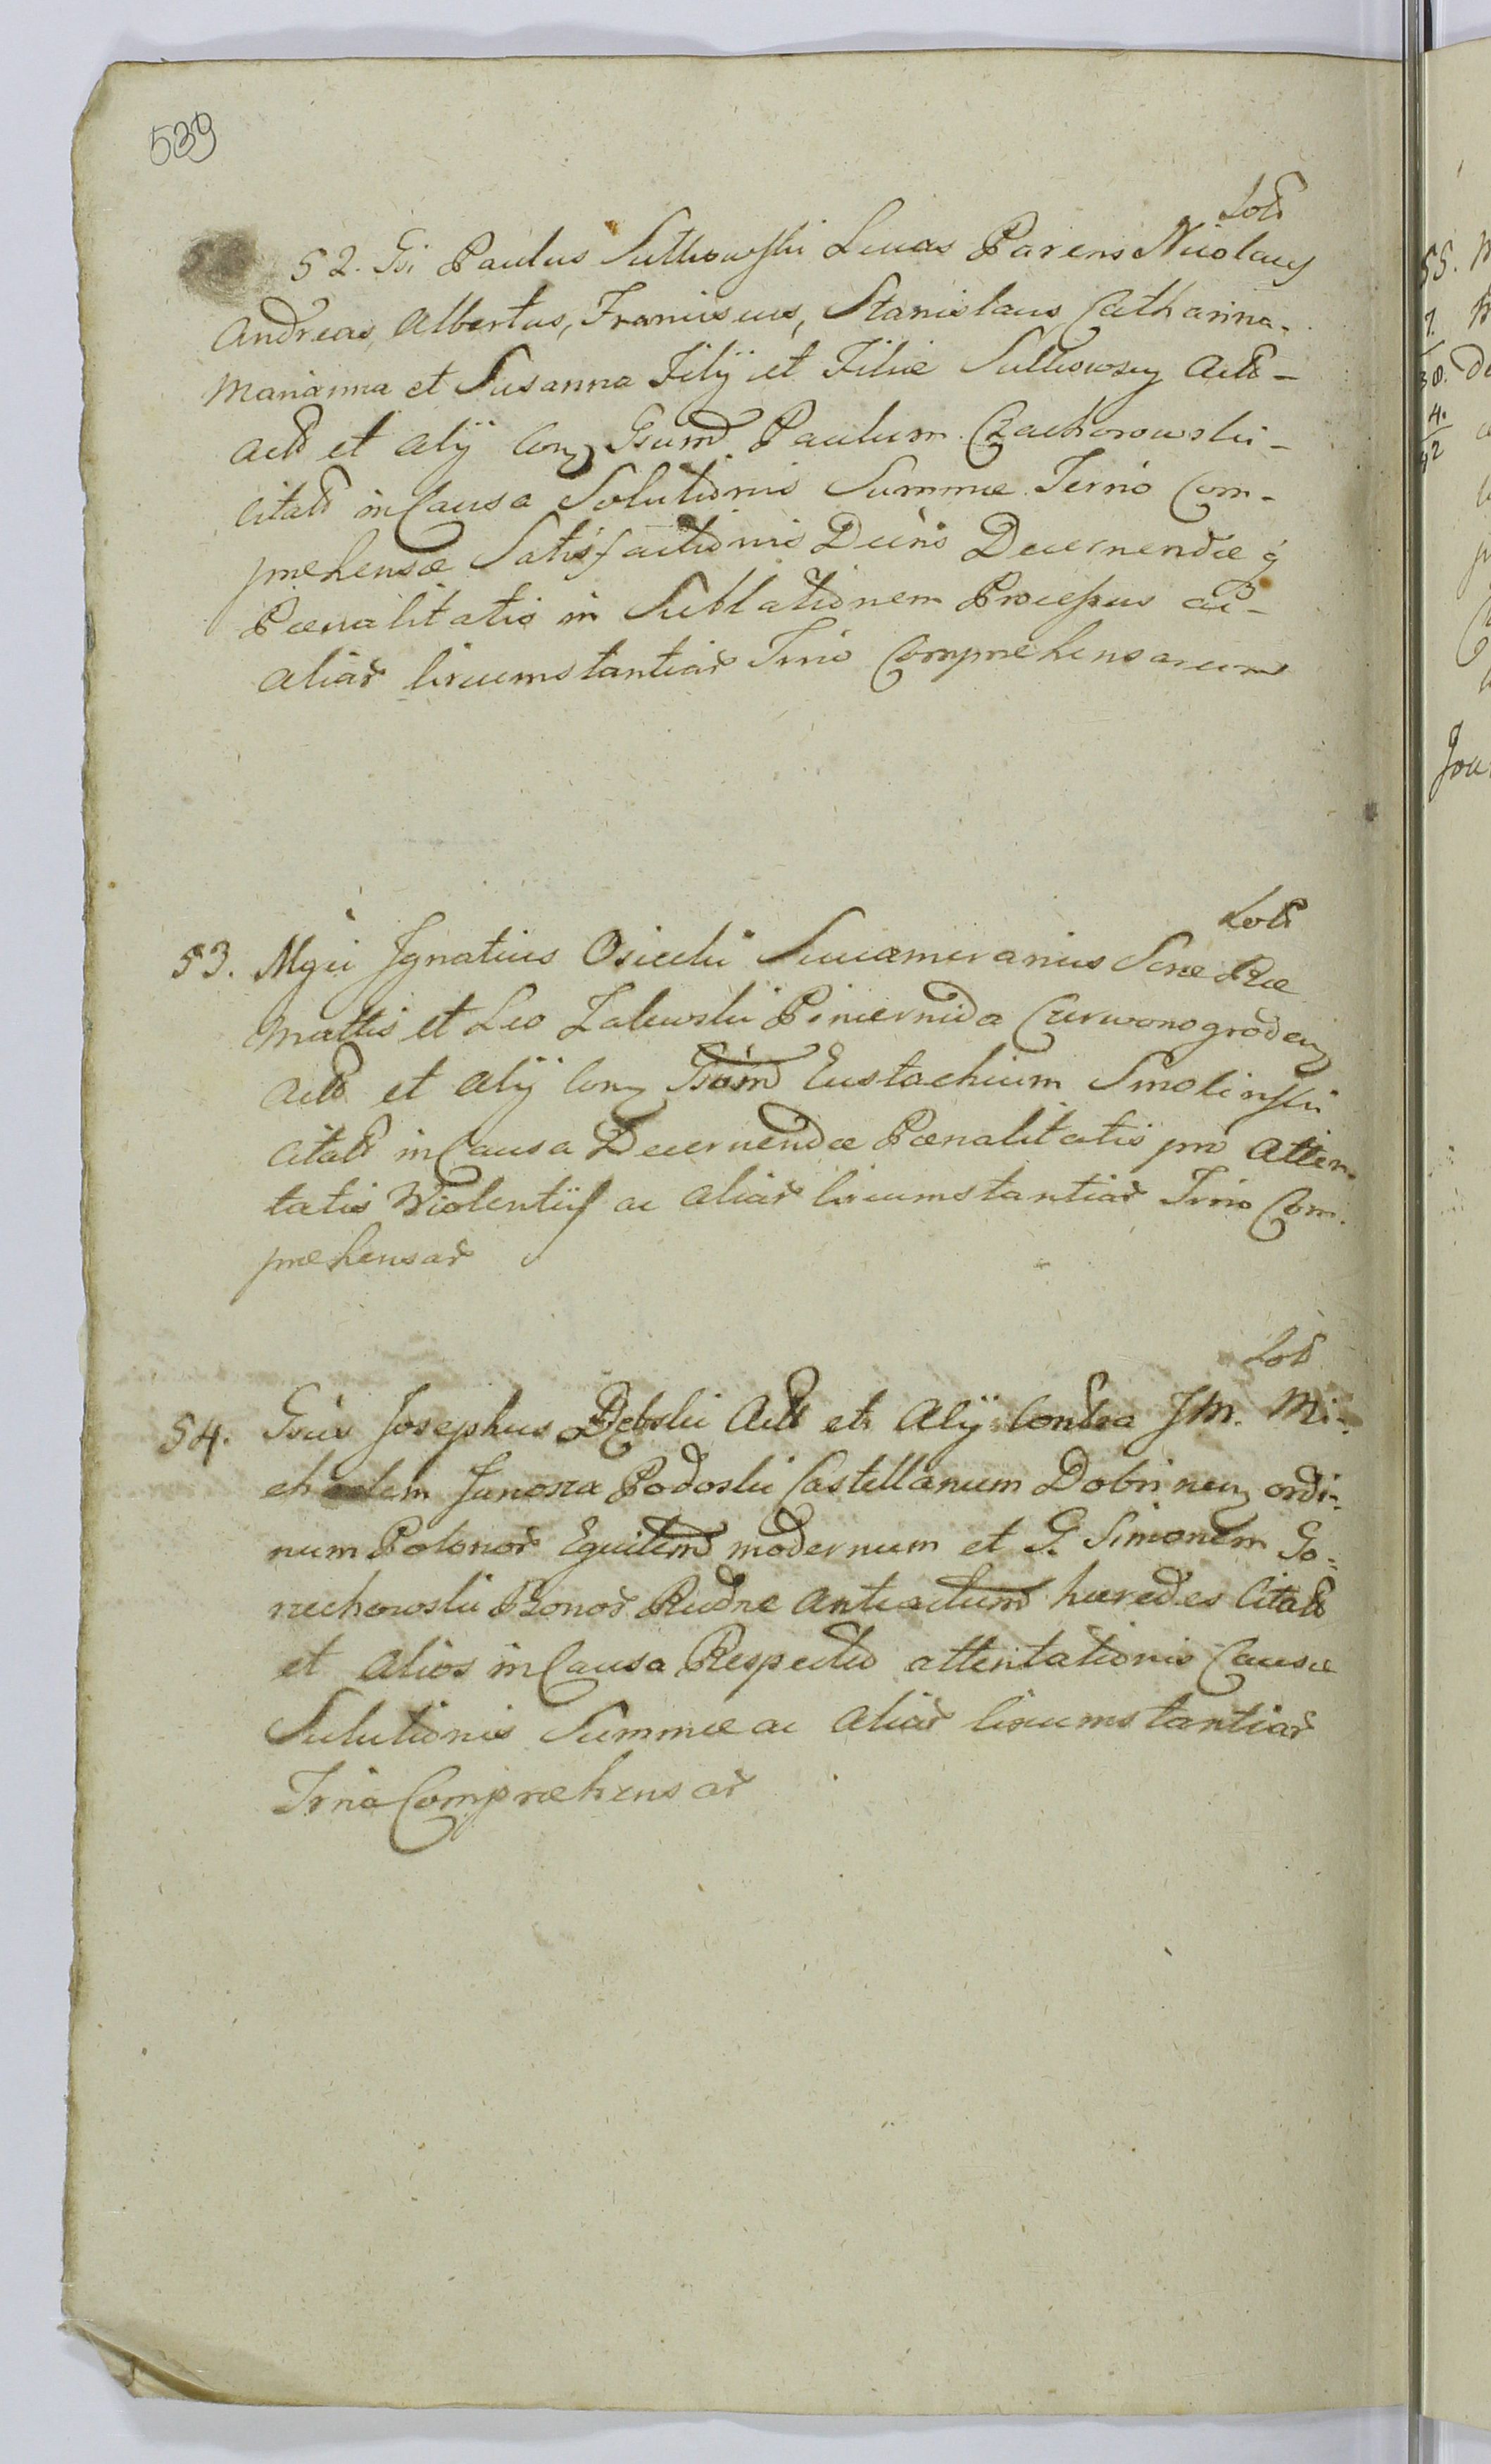 539
Lotd
52. Gsi Paulus Sutkowski Lucas Parens Nicolaus
Andreas, Albertus, Franciscus, Stanislaus Catharina
Marianna et Susanna Filij et Filiæ Sutkowscy Actd
Actd et alij Con Gsumd Paulum Czachorowski
Citatd in Causa Solutionis Summæ Terno Com-
præhensæ Satisfactionis Decris Decernendæ q
Pœnalitatis in Sublationem Processus ac
aliar Circumstantiar Trno Compræhensarum
Lotd
53. Mgci Ignatius Osiecki Succamerarius Scræ Ræ
Mattis et Leo Zalewski Pincernida Czerwonogroden
Actd et alij Con Gsumd Eustachium Smolinski
Citatd in Causa Decernendæ Pœnalitatis pro atten-
tatis Violentijs ac aliar Circumstantiar Trno Com-
præhensar
Lotd
54. Gsus Josephus Dębski Actd et Alij Contra JM. Mi-
chaelem Junosza Podoski Castellanum Dobrinen ordi-
num Polonor Equitemd modernum et G. Simonem Go-
rzechowski Bonor Rudne Anteactumd hæredes Citatd
et Alios in Causa Respectu attentationis Causæ
Solutionis Summæ ac Aliar Circumstantiar
Trno Compræhensar
55.